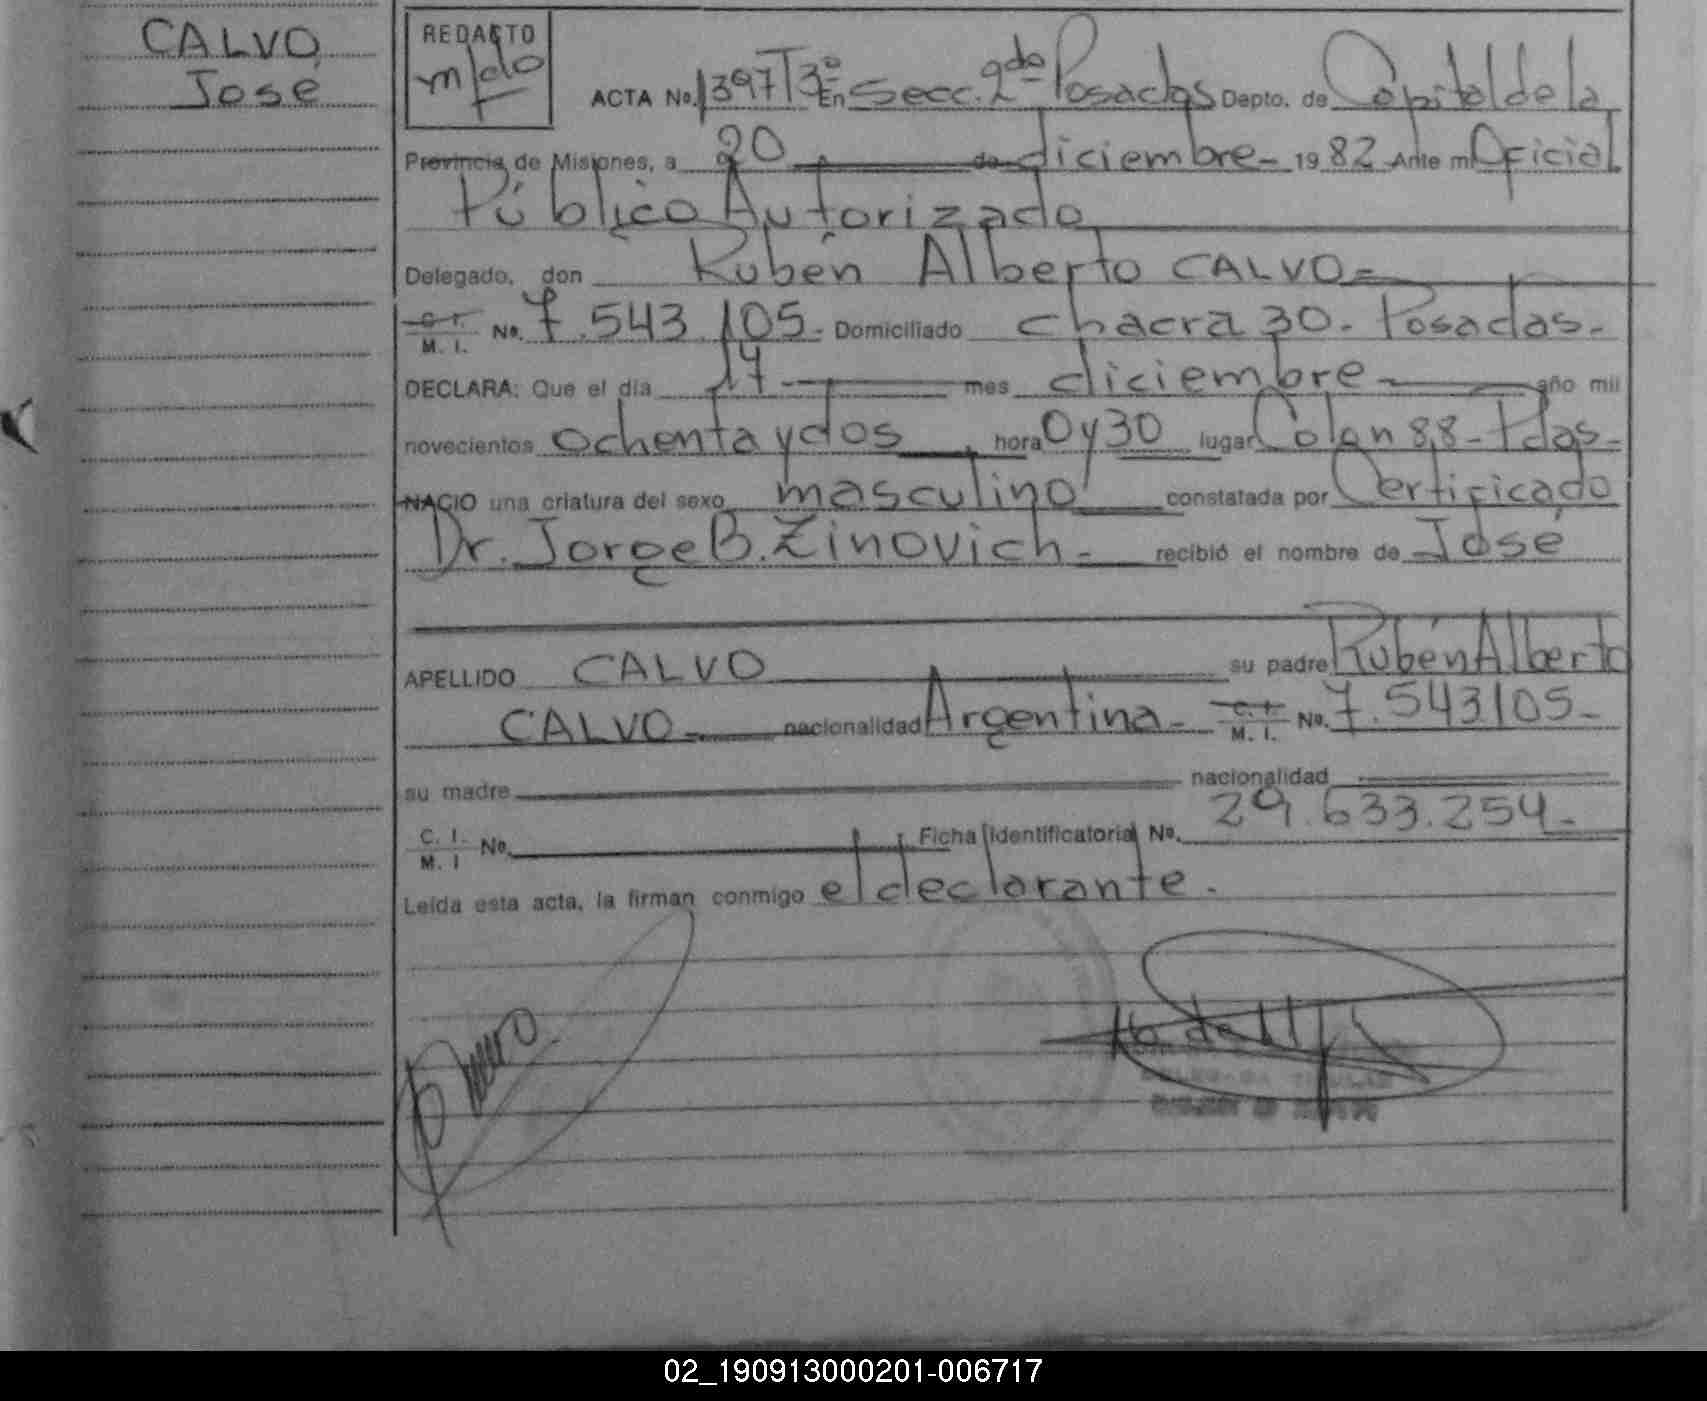 CALVO
José
REDACTO
ACTA No. 1397 T3º En Secc. 2da Posadas Depto. de Capital de la
Provincia de Misiones, a 20 de diciembre - 1982 Ante mi Oficial
Público Autorizado
Delegado, don Rubén Alberto CALVO =
C. I. M. I. No. 7.543.105. Domiciliado chacra 30. Posadas.
DECLARA: Que el día 17 mes diciembre año mil
novecientos ochenta y dos hora 0 y 30 lugar Colon 88 - Pdas -
NACIO una criatura del sexo masculino constatada por Certificado
Dr. Jorge B. Zinovich - recibió el nombre de José
APELLIDO CALVO su padre Rubén Alberto
CALVO - nacionalidad Argentina - C. I. M. I. No. 7.543105 -
su madre nacionalidad
C. I. M. I No. Ficha Identificatoria No. 29.633.254.-
Leída esta acta, la firman conmigo el declarante.
02_190913000201-006717